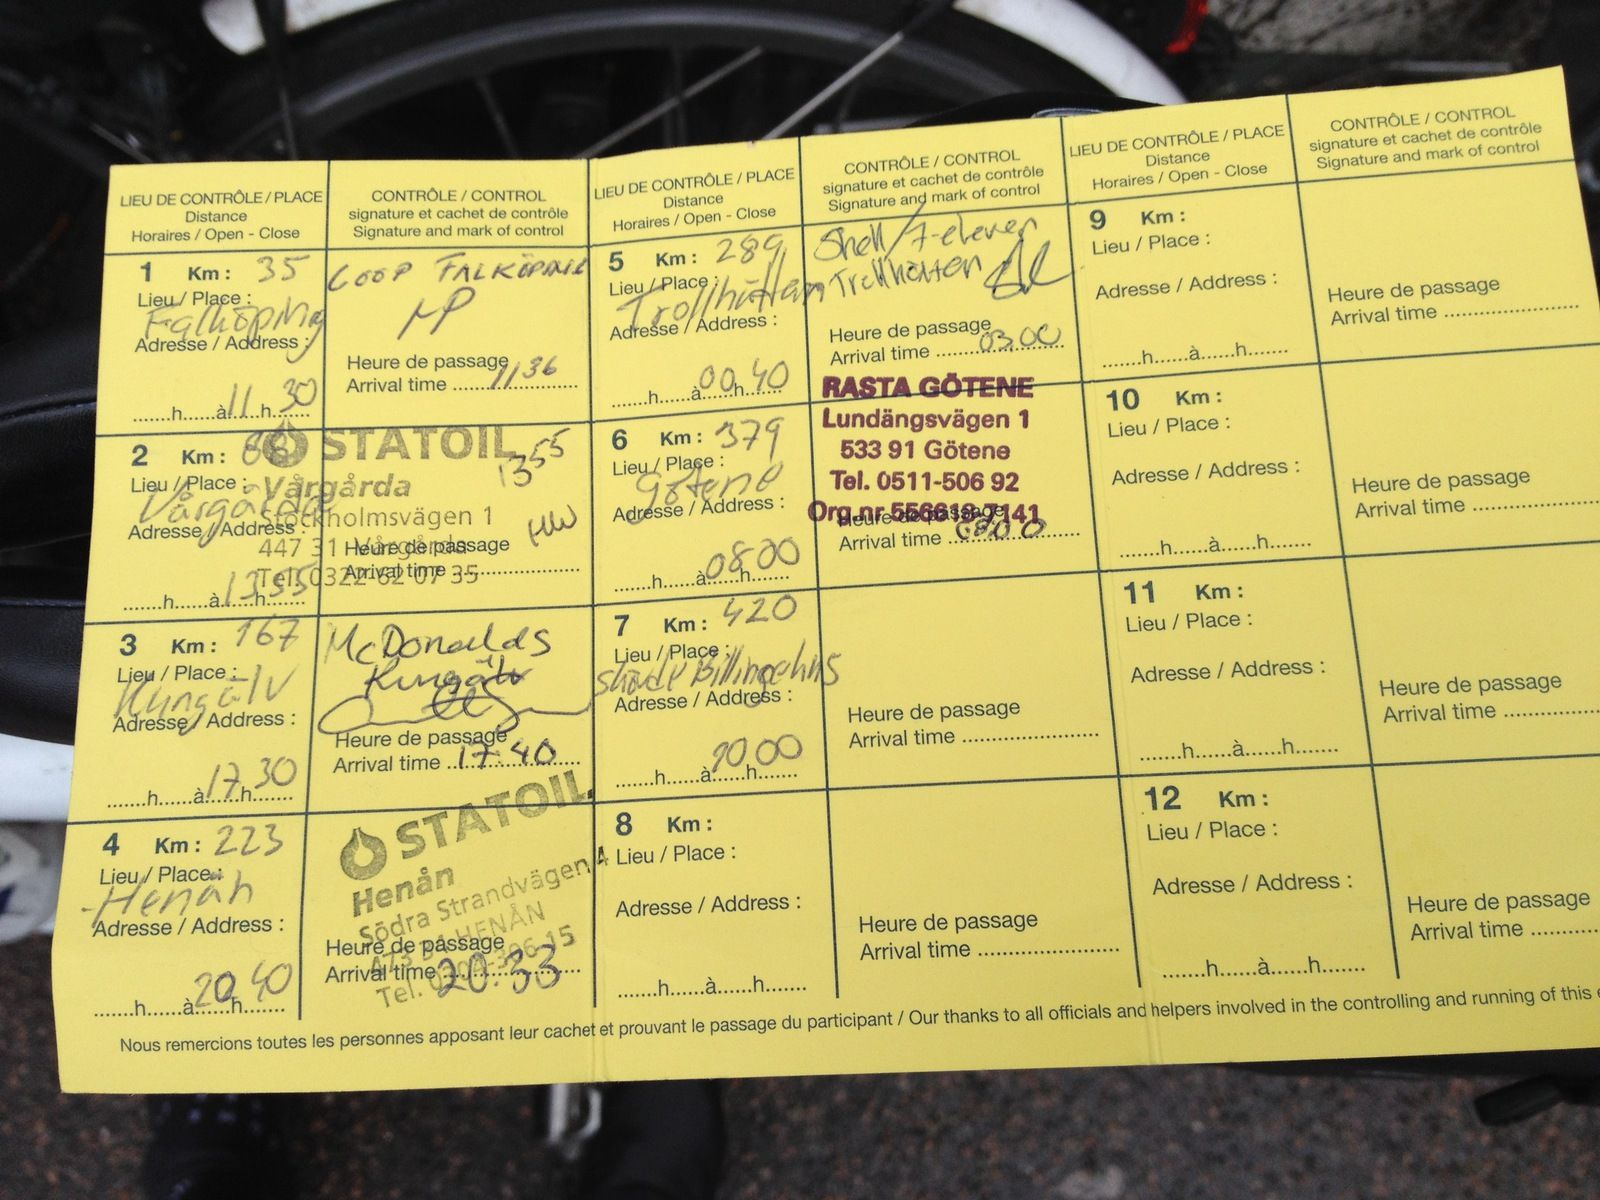 LIEU DE CONTRÔLE / PLACE
Distance
Horaires / Open - Close
CONTRÔLE / CONTROL
signature et cachet de contrôle
Signature and mark of control
1 Km : 35
Lieu / Place :
Falköping
Adresse / Address :
......h......à 11 h 30
COOP FALKÖPING
MP
Heure de passage
Arrival time 11 36
2 Km :
Lieu / Place :
Vårgårda
Adresse / Address :
......h......à 13 55 h......
STATOIL
13 55
Vårgårda
Stockholmsvägen 1
447 31 Vårgårda
Tel. 0322-62 07 35
HW
Heure de passage
Arrival time
3 Km : 167
Lieu / Place :
Kungälv
Adresse / Address :
......h......à 17 h 30
McDonalds
Kungälv
Heure de passage
Arrival time 17:40
4 Km : 223
Lieu / Place :
Henån
Adresse / Address :
......h......à 20 h 40
STATOIL
Henån
Södra Strandvägen 4
HENÅN
Tel.
Heure de passage
Arrival time 20:33
LIEU DE CONTRÔLE / PLACE
Distance
Horaires / Open - Close
CONTRÔLE / CONTROL
signature et cachet de contrôle
Signature and mark of control
5 Km : 289
Lieu / Place :
Trollhättan
Adresse / Address :
......h......à 00 h 40
Shell / 7-eleven
Trollhättan
Heure de passage
Arrival time 03.00
6 Km : 379
Lieu / Place :
Götene
Adresse / Address :
......h......à 08.00 h......
RASTA GÖTENE
Lundängsvägen 1
533 91 Götene
Tel. 0511-506 92
Org.nr
Heure de passage
Arrival time
7 Km : 420
Lieu / Place :
Adresse / Address :
......h......à......h......
Heure de passage
Arrival time
8 Km :
Lieu / Place :
Adresse / Address :
......h......à......h......
Heure de passage
Arrival time
LIEU DE CONTRÔLE / PLACE
Distance
Horaires / Open - Close
CONTRÔLE / CONTROL
signature et cachet de contrôle
Signature and mark of control
9 Km :
Lieu / Place :
Adresse / Address :
......h......à......h......
Heure de passage
Arrival time
10 Km :
Lieu / Place :
Adresse / Address :
......h......à......h......
Heure de passage
Arrival time
11 Km :
Lieu / Place :
Adresse / Address :
......h......à......h......
Heure de passage
Arrival time
12 Km :
Lieu / Place :
Adresse / Address :
......h......à......h......
Heure de passage
Arrival time
Nous remercions toutes les personnes apposant leur cachet et prouvant le passage du participant / Our thanks to all officials and helpers involved in the controlling and running of this